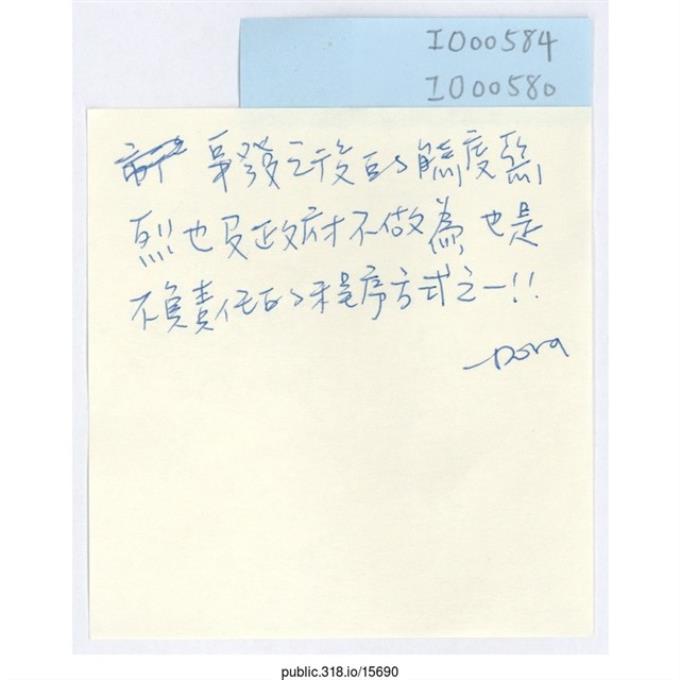 IO00584
IO00580
事發之後的態度
烈也及政府不做為也是
不負責任的程序方式之一!!
—Dora
public.318.io/15690